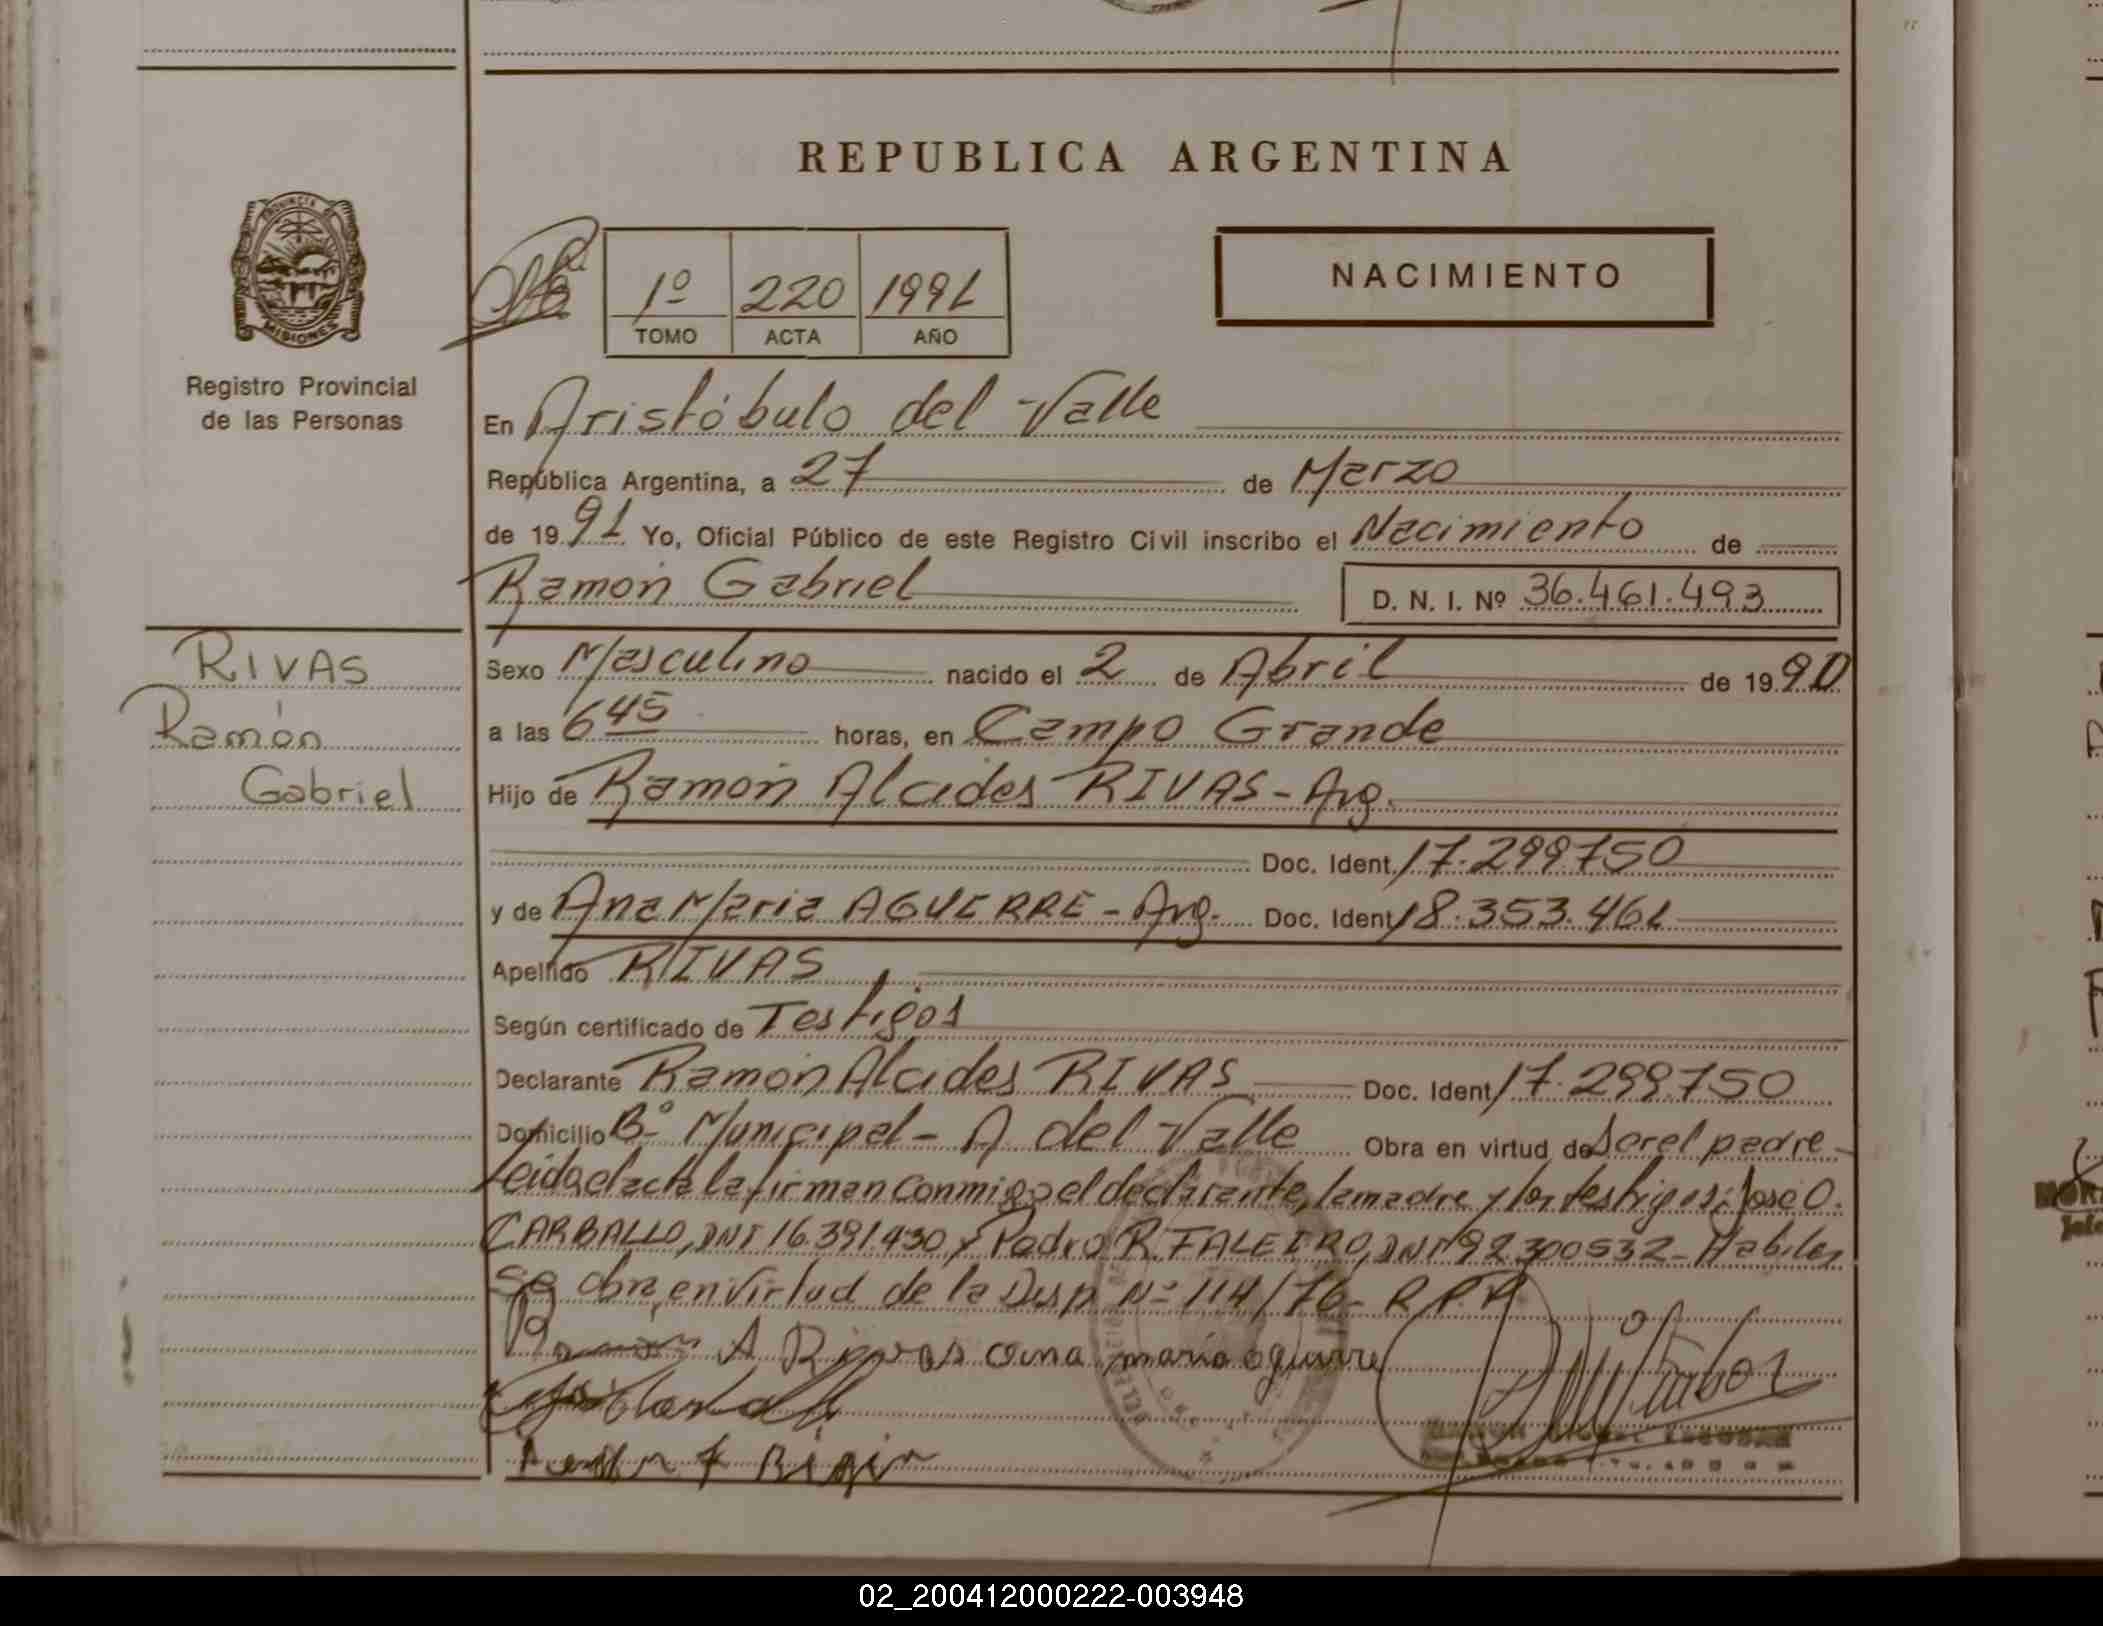 REPUBLICA ARGENTINA
PROVINCIA DE MISIONES
Registro Provincial
de las Personas
1º 220 1991
TOMO ACTA AÑO
NACIMIENTO
En Aristóbulo del Valle
República Argentina, a 27 de Marzo
de 1991 Yo, Oficial Público de este Registro Civil inscribo el Nacimiento de
Ramón Gabriel D. N. I. Nº 36.461.493
RIVAS
Ramón
Gabriel
Sexo Masculino nacido el 2 de Abril de 1990
a las 6 45 horas, en Campo Grande
Hijo de Ramón Alcides RIVAS - Arg.
Doc. Ident. 17.299750
y de Ana Maria AGUERRE - Arg. Doc. Ident 18.353.461
Apellido RIVAS
Según certificado de Testigos
Declarante Ramón Alcides RIVAS Doc. Ident 17.299.750
Domicilio Bº Municipal - A. del Valle Obra en virtud de Ser el padre -
Leida el acta la firman conmigo el declarante, la madre y los testigos: José O.
CARBALLO, DNI 16.391.430 y Pedro R. FALEIRO, DNI 92.300532 - Habiles
Se obra en virtud de la Disp. Nº 114/76 - R.P.P.
Ramon A Rivas ana maria aguirre
02_200412000222-003948